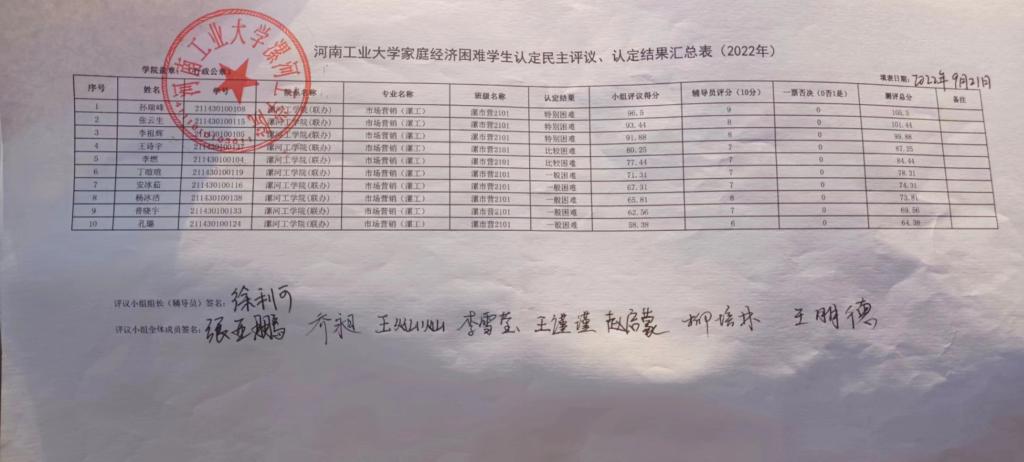 河南工业大学家庭经济困难学生认定民主评议、认定结果汇总表（2022年）
河南工业大学漯河工
学院盖章：（行政公章） 填表日期：2022年9月21日
序号 姓名 学号 院系名称 专业名称 班级名称 认定结果 小组评议得分 辅导员评分（10分） 一票否决（0否1是） 测评总分 备注
1 孙瑞峰 211430100108 漯河工学院(联办) 市场营销（漯工） 漯市营2101 特别困难 96.5 9 0
2 张云生 211430100115 漯河工学院(联办) 市场营销（漯工） 漯市营2101 特别困难 93.44 8 0 101.44
3 李祖辉 211430100105 漯河工学院(联办) 市场营销（漯工） 漯市营2101 特别困难 91.88 8 0 99.88
4 王诗宇 漯河工学院(联办) 市场营销（漯工） 漯市营2101 比较困难 80.25 7 0 87.25
5 李燃 211430100104 漯河工学院(联办) 市场营销（漯工） 漯市营2101 比较困难 77.44 7 0 84.44
6 丁暄暄 211430100119 漯河工学院(联办) 市场营销（漯工） 漯市营2101 一般困难 71.31 7 0 78.31
7 安冰茹 211430100116 漯河工学院(联办) 市场营销（漯工） 漯市营2101 一般困难 67.31 7 0 74.31
8 杨冰洁 211430100138 漯河工学院(联办) 市场营销（漯工） 漯市营2101 一般困难 65.81 8 0 73.81
9 晓宇 211430100133 漯河工学院(联办) 市场营销（漯工） 漯市营2101 一般困难 62.56 7 0 69.56
10 孔 211430100124 漯河工学院(联办) 市场营销（漯工） 漯市营2101 一般困难 58.38 6 0 64.38
评议小组组长（辅导员）签名：徐利可
评议小组全体成员签名：张亚鹏 乔昶 王灿灿 李雪莹 王谨谨 赵启蒙 柳培环 王明德